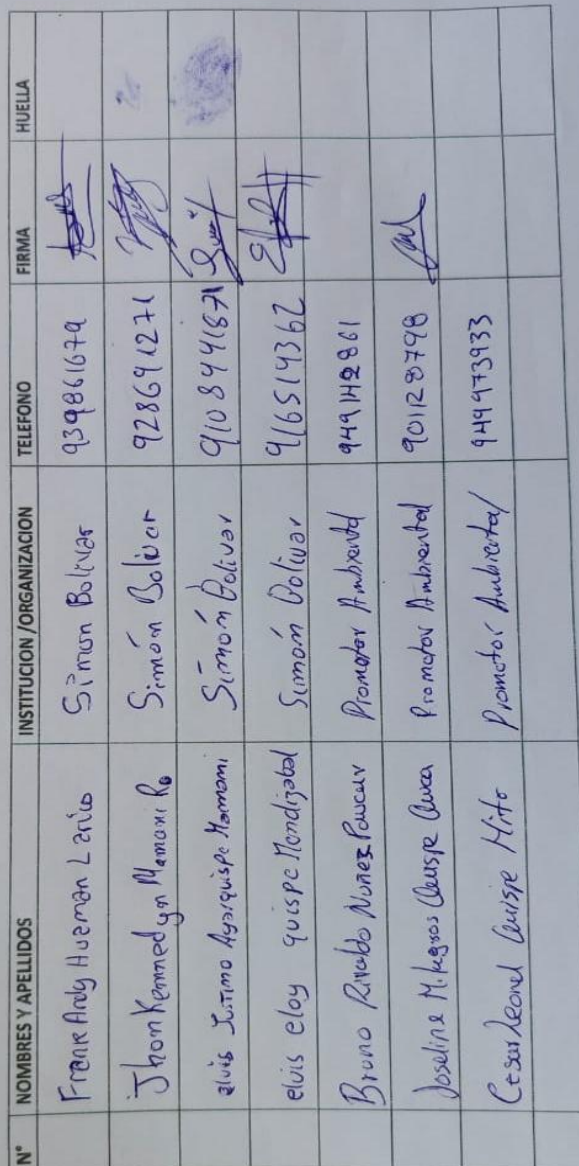 N° NOMBRES Y APELLIDOS INSTITUCION/ORGANIZACION TELEFONO FIRMA HUELLA
Frank Andy Huaman Larico Simon Bolivar 939861679
Jhon Kennedyn Mamani R Simón Bolivar 928691271
elvis Mamani Simón Bolivar 9108441871
elvis eloy quispe Mondizabal Simón Bolivar 916519362
Bruno Rivaldo Nuñez Paucar Promotor Ambiental 949142861
Joseline Milagros Quispe Promotor Ambiental 901128798
Cesar Leonel Quispe Mito Promotor Ambiental 949973933